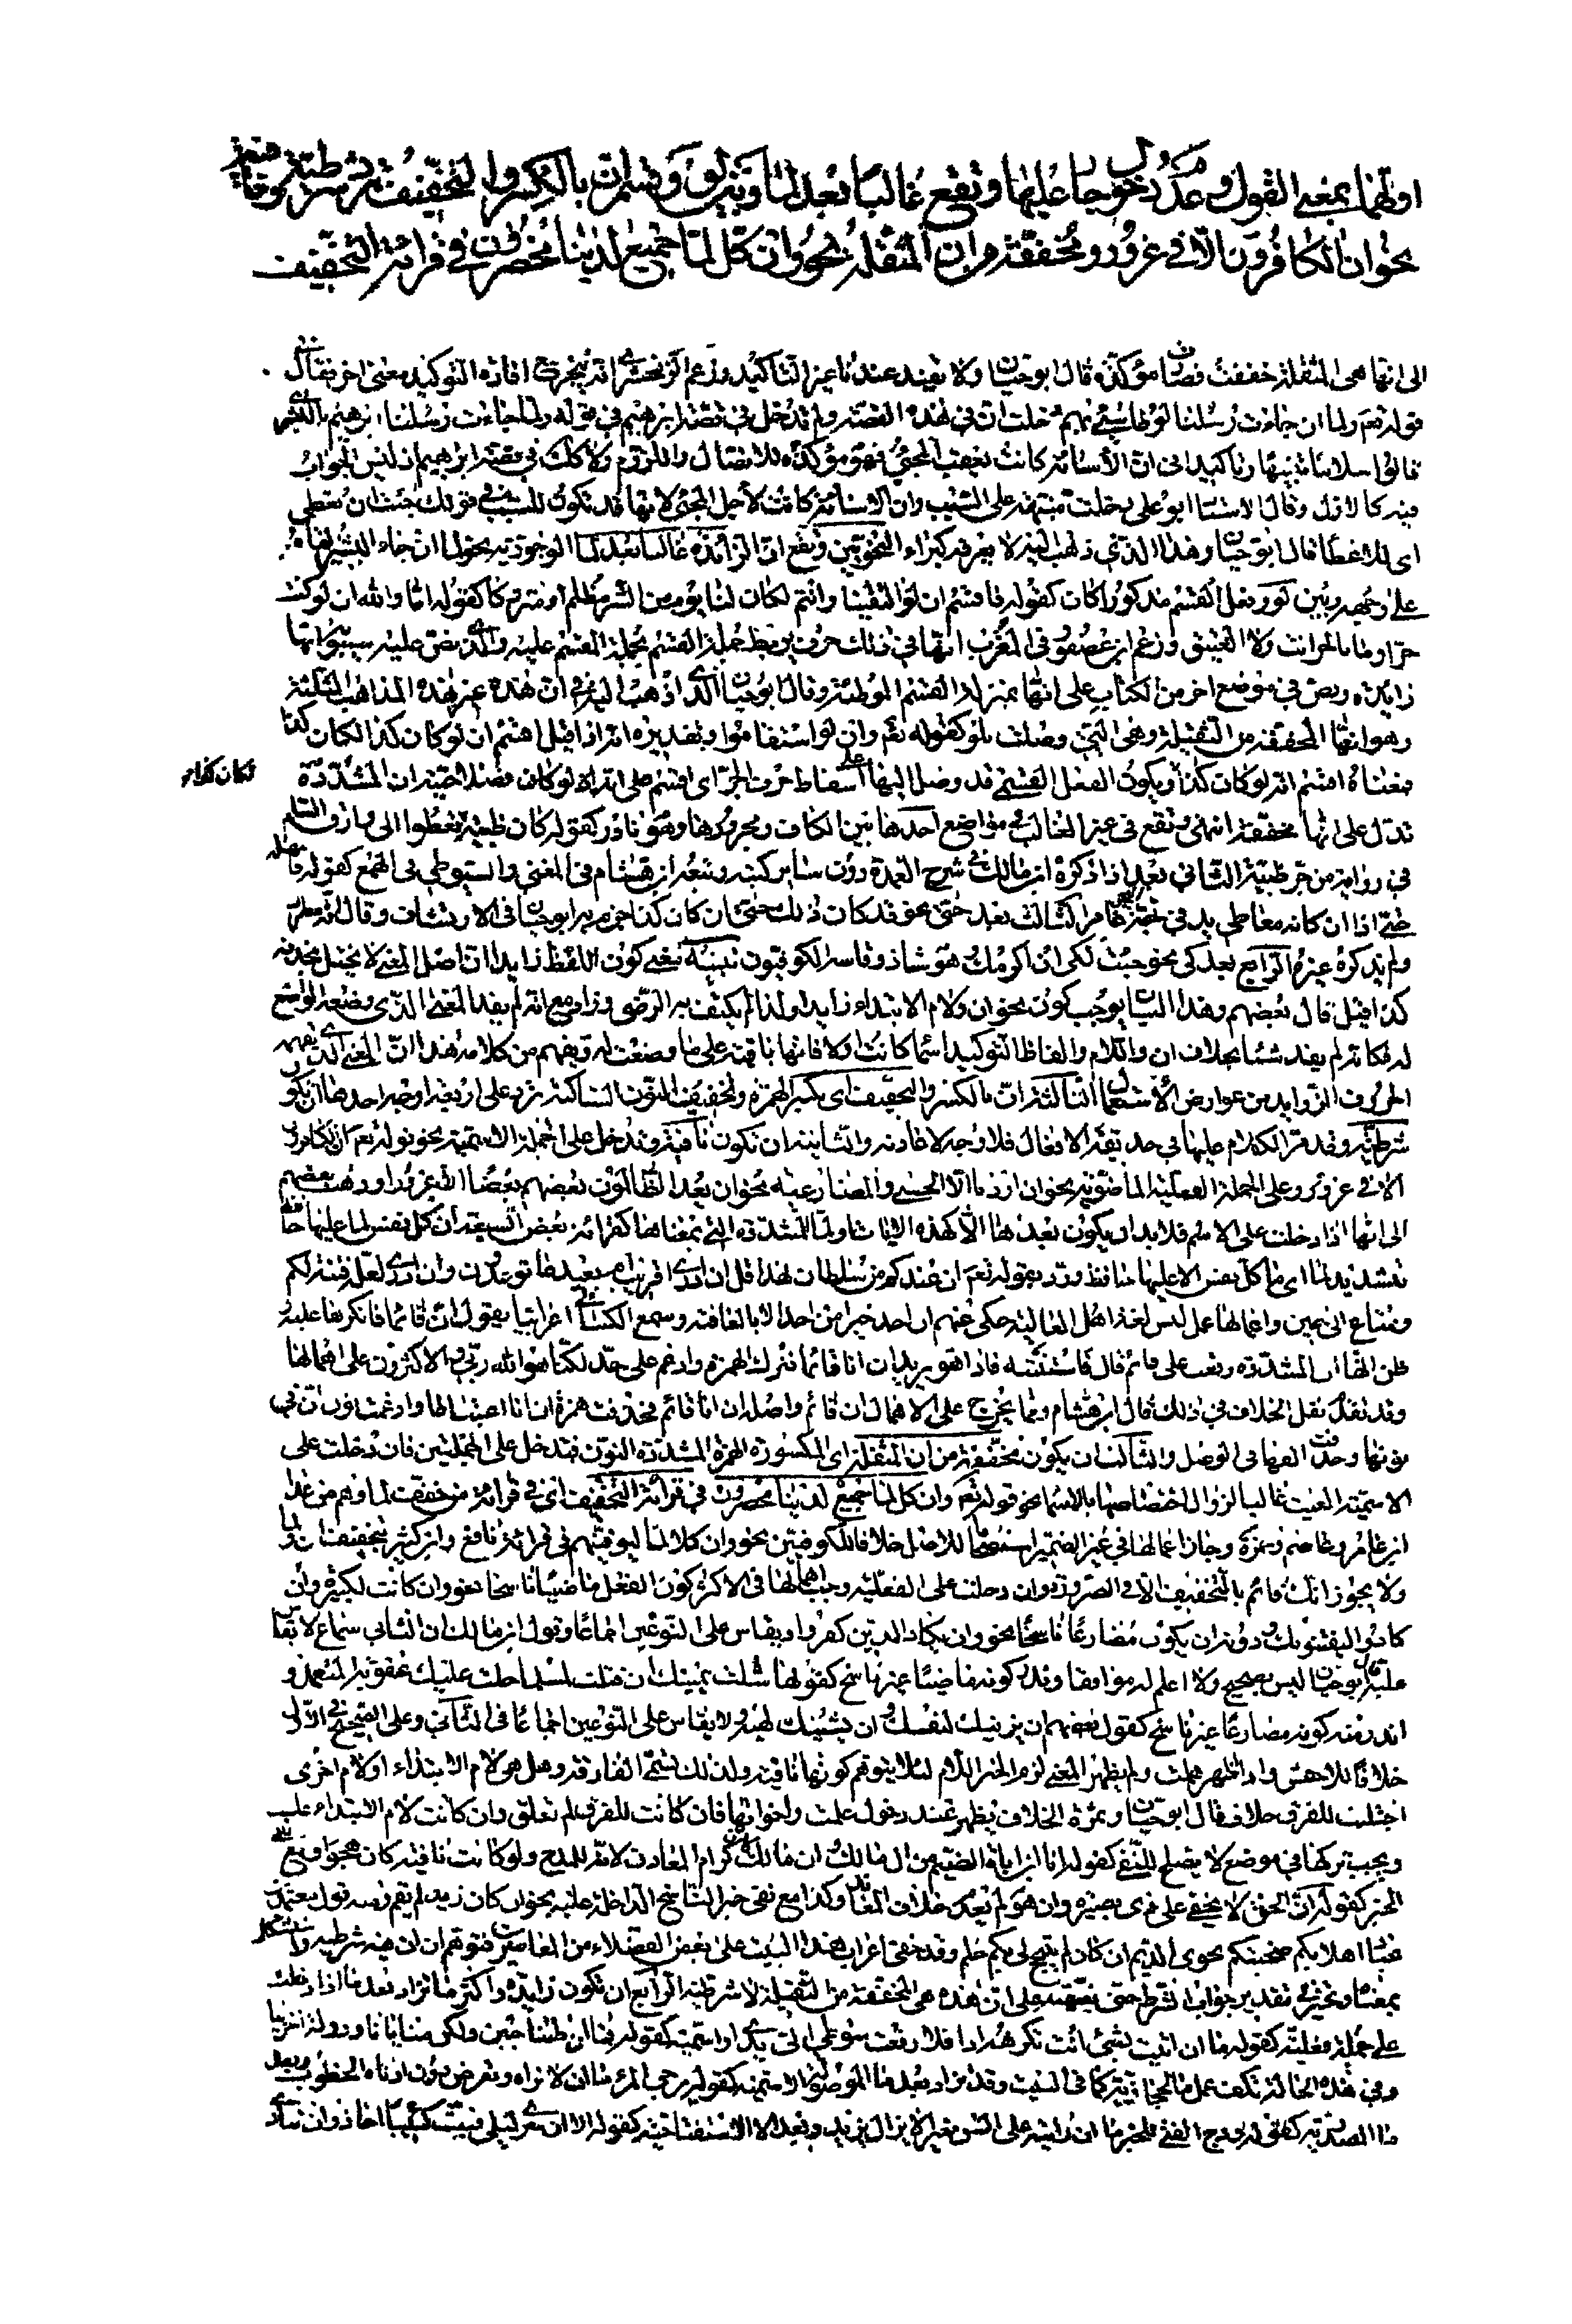 اولهما بمعنى القول وعدد خروجا عليها وتقع غالبا بعد لما وبين لو وقسم ان بالكسر والتخفيف ترد شرطية ونافية
نحو ان الكافرون الا في غرور ومخففة من ان المثقلة نحو وان كل لما جميع لدينا محضرون في قرائة التخفيف
الى انها هي المثقلة خففت فصارت مؤكدة قال ابو حيان ولا تفيد عندنا غير التاكيد وزعم الزمخشري انه ينجر مع افادة التوكيد معنى اخر فقال في
قوله تعم ولما ان جاءت رسلنا لوطا سيئ بهم دخلت ان في هذه القصة ولم تدخل في قصة ابرهيم في قوله ولما جاءت رسلنا ابرهيم بالبشرى
قالوا سلاما تنبيها وتاكيدا في ان الاساءة كانت تعقب المجيئ فهو مؤكدة للاتصال واللزوم ولا كذلك في قصة ابرهيم اذ ليس الجواب
فيه كالاول وقال الاستاذ ابو علي دخلت منبهة على السبب وان الاساءة كانت لاجل المجئ لانها قد تكون للسبب في قولك جئت ان تعطي
اي للاعطا قال ابو حيان وهذا الذي ذهب اليه لا يعرفه كبراء النحويين وتقع ان الزائدة غالبا بعد لما الوجودية نحو لما ان جاء البشير القاه
على وجهه وبين لو وفعل القسم مذكورا كان كقوله فاقسم ان لو التقينا وانتم لكان لنا يوم من الشر مظلم او متروكا كقوله اما والله ان لو كنت
حرا وما بالحر انت ولا العتيق وزعم ابن عصفور في المقرب انها في ذلك حرف يربط جملة القسم بجملة المقسم عليه والذي نص عليه سيبويه انها
زايدة ونص في موضع اخر من الكتاب على انها بمنزلة لام القسم الموطئة وقال ابو حيان الذي اذهب اليه ان هذه غير هذه المذاهب الثلثة
وهو انها المخففة من الثقيلة وهي التي وصلت بلو كقوله تعم وان لو استقاموا وتقديره انه اذا قيل اقسم ان لو كان كذا لكان كذا
فمعناه اقسم انه لو كان كذا ويكون الفعل القسمي قد وصل اليها على اسقاط حرف الجر اي اقسم على انه لو كان فصلاحية ان المشددة
لكان كذا
تدل على انها مخففة انتهى وتقع في غير الغالب في مواضع احدها بين الكاف ومجرورها وهو نادر كقوله كان ظبية تعطوا الى وارق السلم
في رواية من جر ظبية الثاني بعد اذا ذكره ابن مالك في شرح العمدة دون ساير كتبه وتبعه ابن هشام في المغني والسيوطي في الجمع كقوله فامهله
حتى اذا ان كانه معاطي يد في لجة غامر الثالث بعد حتى نحو قد كان ذلك حتى ان كان كذا جزم به ابو حيان في الارتشاف وقال انه مطرد
ولم يذكره غيره الرابع بعد كي نحو جئت لكي ان اكرمك وهو شاذ وقاسه الكوفيون تنبيه معنى كون اللفظ زايدا ان اصل المعنى لا يختل بحذفه
كذا قيل قال بعضهم وهذا البيان يوجب كون نحو ان ولام الابتداء زايدا ولذا لم يكتف به الرضي وزاد مع انه لم يفد المعنى الذي وضعه الواضع
له فكانه لم يفد شيئا بخلاف ان واللام والفاظ التوكيد اسما كانت اولا فانها باقية على ما وضعت له ويفهم من كلامه هذا ان المعنى الذي تفهمه
الحروف الزوايد من عوارض الاستعمال الثالثة ان بالكسر والتخفيف اي بكسر الهمزة وتخفيف النون الساكنة ترد على اربعة اوجه احدها ان تكون
شرطية وقد مر الكلام عليها في حديقة الافعال فلا وجه لاعادته والثانية ان تكون نافية وتدخل على الجملة الاسمية نحو قوله تعم ان الكافرون
الا في غرور وعلى الجملة الفعلية الماضوية نحو ان اردنا الا الحسنى والمضارعية نحو ان يعد الظالمون بعضهم بعضا الا غرورا وذهب بعضهم
الى انها اذا دخلت على الاسم فلا بد ان يكون بعدها الا كهذه الايات او لما المشددة التي بمعناها كقرائة بعض السبعة ان كل نفس لما عليها حافظ
بتشديد لما اي ما كل نفس الا عليها حافظ ورد بقوله تعم ان عندكم من سلطان بهذا قل ان ادري اقريب ام بعيد ما توعدون وان ادري لعله فتنة لكم
ومتاع الى حين واعمالها عمل ليس لغة اهل العالية حكي عنهم ان احد خيرا من احد الا بالعافية وسمع الكسائي اعرابيا يقول ان قائما فانكرها عليه
ظن انها ان المشددة وقعت على قائم قال فاستثبته فاذا هو يريد ان انا قائما فترك الهمزة وادغم على حد لكنا هو الله ربي والاكثرون على اهمالها
وقد تقدم نقل الخلاف في ذلك قال ابن هشام ومما يخرج على الاهمال ان قائم واصله ان انا قائم فحذفت همزة انا اعتباطا وادغمت نون ان في
نونها وحذفت الفها في الوصل والثالث ان يكون مخففة من ان المثقلة اي المكسورة الهمزة المشددة النون فتدخل على الجملتين فان دخلت على
الاسمية الغيت غالبا لزوال اختصاصها بالاسماء نحو قوله تعم وان كل لما جميع لدينا محضرون في قرائة التخفيف اي في قرائة من خفف لما وهم من عدا
ابن عامر وعاصم وحمزة وجاز اعمالها في غير الضمير استصحابا للاصل خلافا للكوفيين نحو وان كلا لما ليوفينهم في قرائة نافع وابن كثير بتخفيف ان ولما
ولا يجوز انك قائم بالتخفيف الا في الضرورة وان دخلت على الفعلية وجب اهمالها في الاكثر كون الفعل ماضيا ناسخا نحو وان كانت لكبيرة وان
كادوا ليفتنونك ودونه ان يكون مضارعا ناسخا نحو وان يكاد الذين كفروا ويقاس على النوعين اجماعا وقول ابن مالك ان الثاني سماع لا يقاس
عليه قال ابو حيان ليس بصحيح ولا اعلم له موافقا وندر كونه ماضيا غير ناسخ كقولها شلت يمينك ان قتلت لمسلما حلت عليك عقوبة المتعمد و
اندر منه كونه مضارعا غير ناسخ كقول بعضهم ان يزينك لنفسك وان يشينك لهيه ولا يقاس على النوعين اجماعا في الثاني وعلى الصحيح في الاول
خلافا للاخفش واذا ظهر هملت ولم يظهر المعنى لزم الخبر اللام لئلا يتوهم كونها نافية ولذلك تسمى الفارقة وهل هي لام الابتداء او لام اخرى
اجتلبت للفرق خلاف قال ابو حيان وثمرة الخلاف يظهر عند دخول علمت واخواتها فان كانت للفرق لم تعلق وان كانت لام الابتداء علقت
ويجب تركها في موضع لا يصلح للنفي كقوله انا ابن اباة الضيم من ال مالك وان مالك كانت كرام المعادن لانه للمدح ولو كانت نافية كان هجوا ومع نفي
الخبر كقوله ان الحق لا يخفى على ذي بصيرة وان هو لم يعدم خلاف المعاند وكذا مع نفي خبر الناسخ الداخلة عليه نحو ان كان زيد لم يقم ومنه قول
بمعناه وتحير في تقدير جواب الشرط حتى نبهته على ان هذه هي المخففة من الثقيلة لا شرطية الرابع ان تكون زايدة واكثر ما تزاد بعد ما اذا دخلت
على جملة فعلية كقوله ما ان اتيت بشيئ انت تكرهه اذا فلا رفعت سوطي الى يدي او اسمية كقوله فما ان طبنا جبن ولكن منايانا ودولة اخرينا
وفي هذه الحالة تكف عمل ما الحجازية كما في البيت وقد تزاد بعد ما الموصولة الاسمية كقوله يرجي المرء ما ان لا يراه وتعرض دون ادناه الخطوب وبعد
ما المصدرية كقوله ورج الفتى للخير ما ان رايته على السن خيرا لا يزال يزيد وبعد الا الاستفتاحية كقوله الا ان سرى ليلي فبت كئيبا احاذر ان تنأى